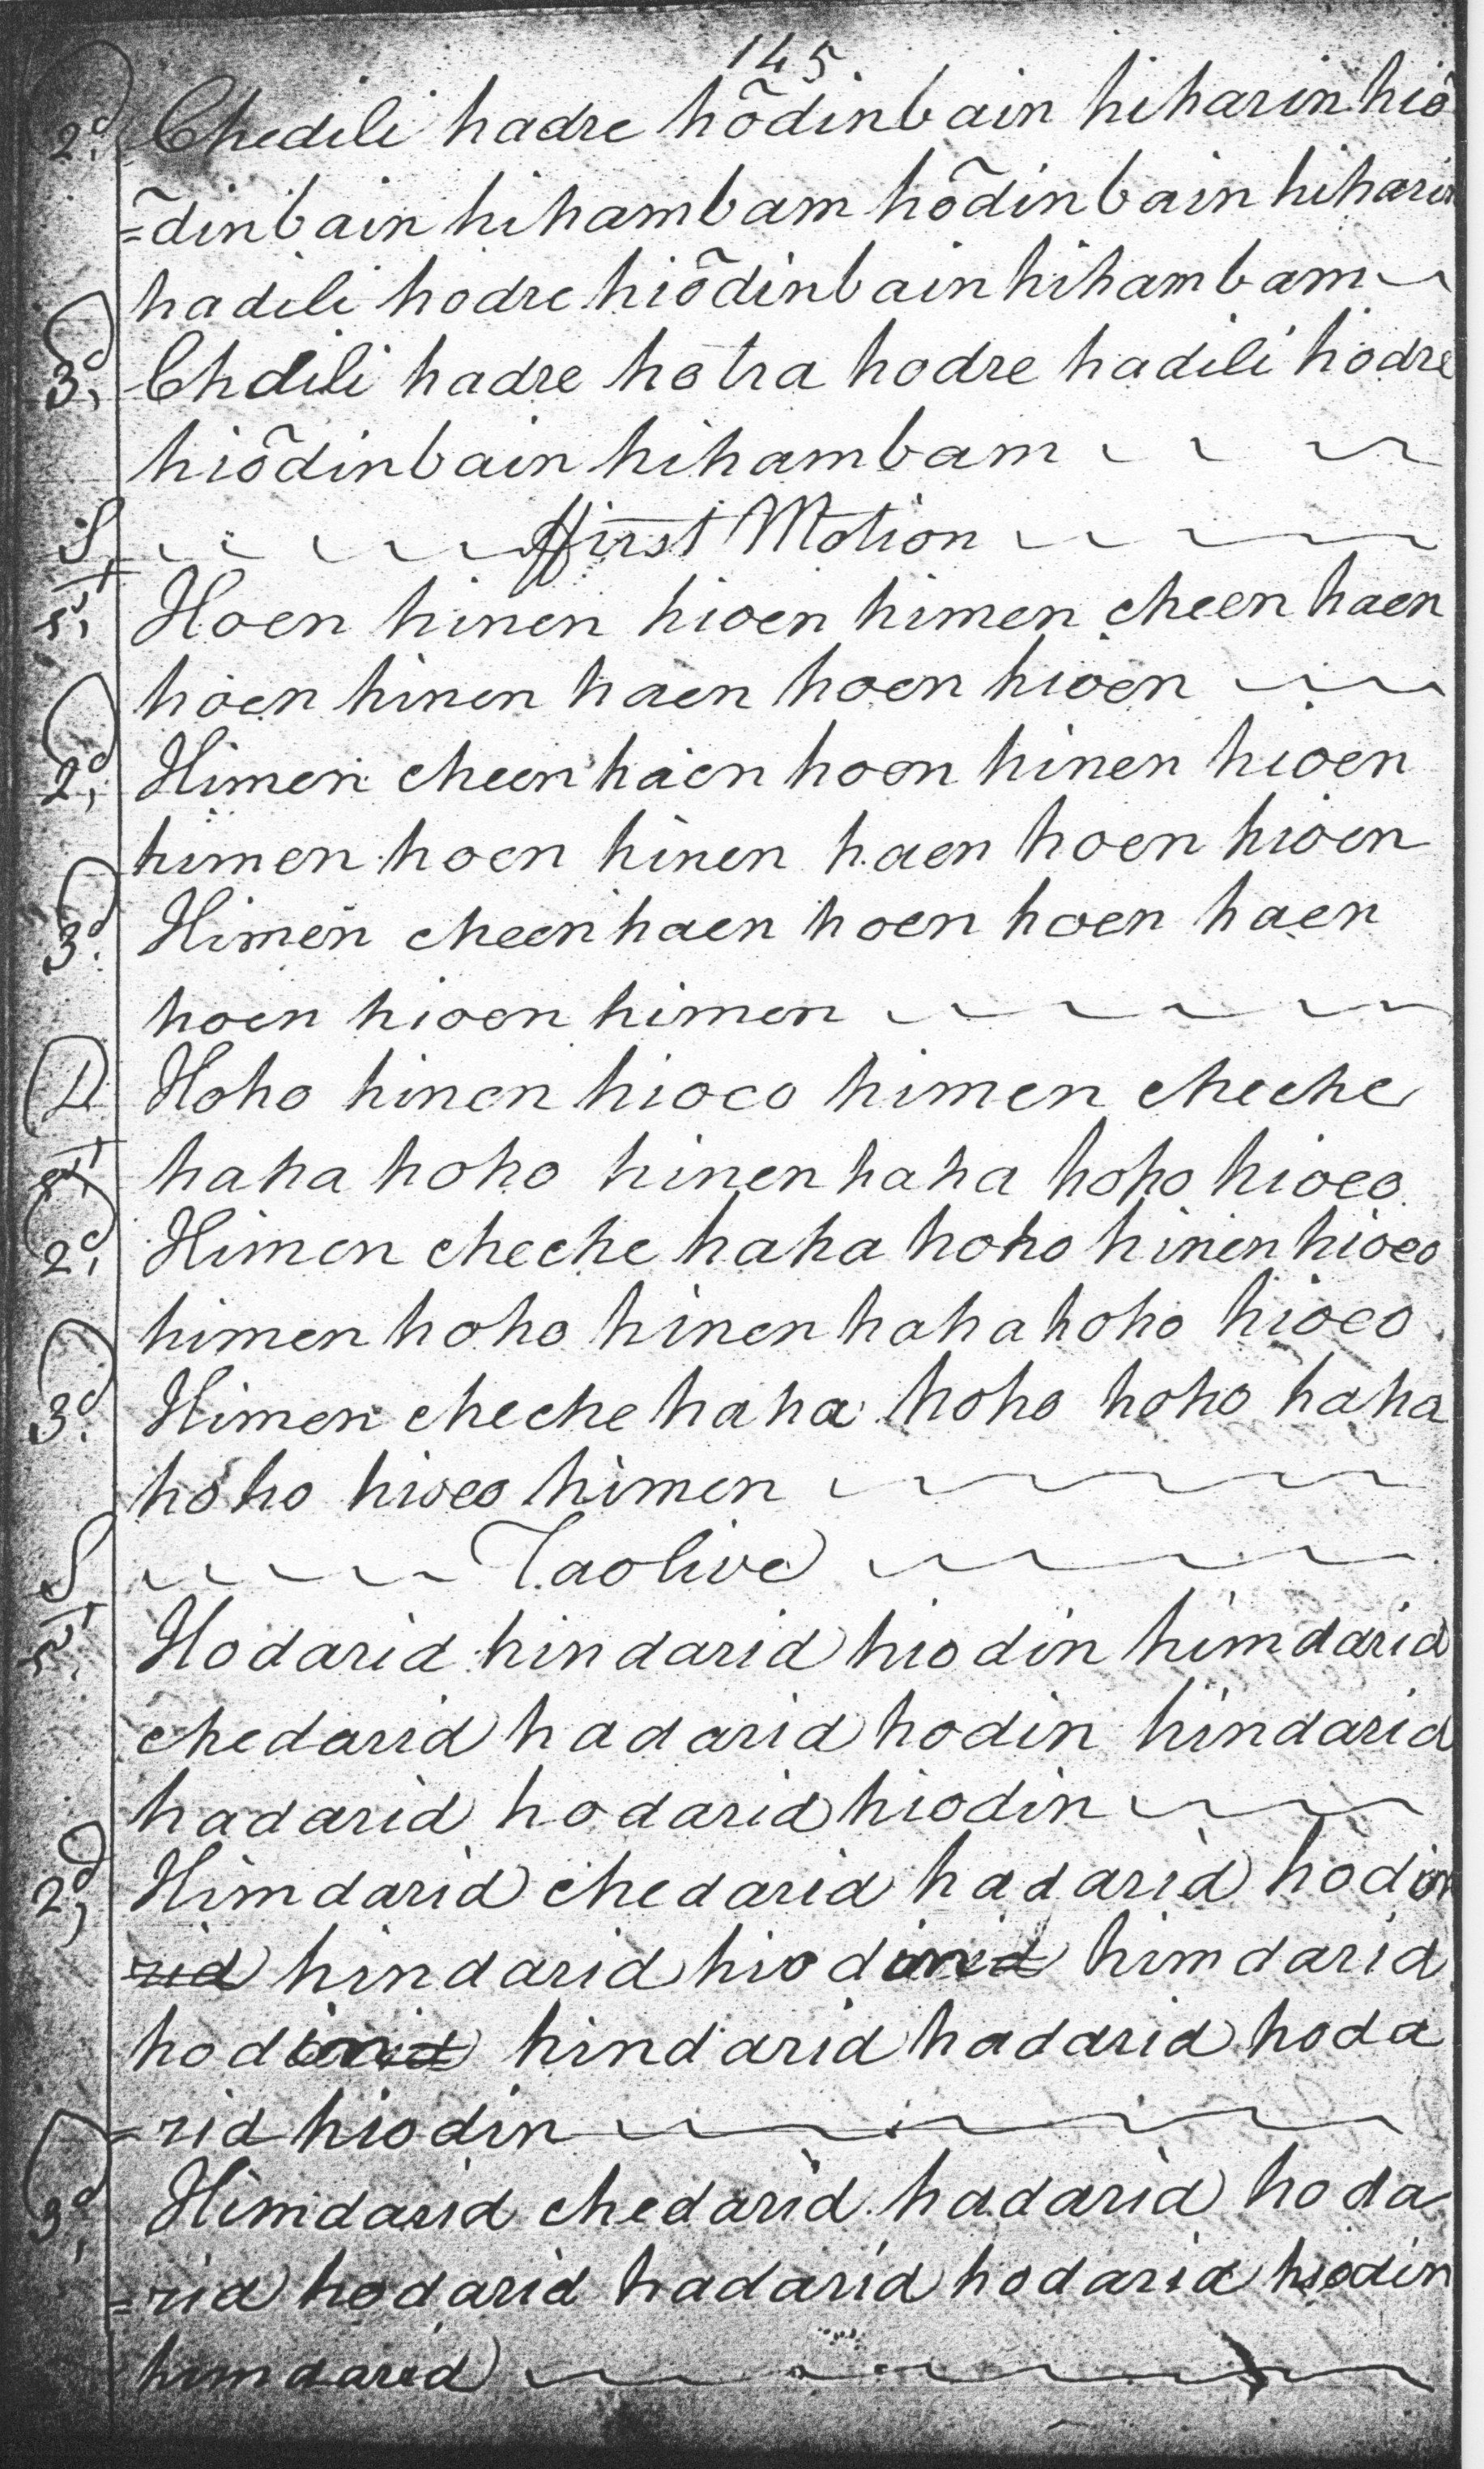 145
2d, Chedili hadre hõdinbain hiharin hiõ
=õdinbain hihambam hõdinbain hiharin
hadili hodre hiõdinbain hihambam
3d, Chdili hadre hotra hodre hadili hodre
hiõdinbain hihambam
S, ffirst Motion
1st, Hoen hinen hioen himen cheen haen
hoen hinen haen hoen hioen
2d, Himen cheen haen hoen hinen hioen
himen hoen hinen haen hoen hioen
3d, Himen cheen haen hoen hoen haen
hoen hioen himen
D Hoho hinen hioeo himen cheche
1st, haha hoho hinen haha hoho hioeo
2d, Himen cheche haha hoho hinen hioeo
himen hoho hinen haha hoho hioeo
3d, Himen cheche haha hoho hoho haha
hoho hioeo himen
S Taolive
1st, Hodarid hindarid hiodin himdarid
chedarid hadarid hodin hindarid
hadarid hodarid hiodin
2d, Himdarid chedarid hadarid hodin
rid hindarid hiodin himdarid
hodin hindarid hadarid hoda
=rid hiodin
3d, Himdarid chedarid hadarid hoda
=rid hodarid hadarid hodarid hiodin
himdarid